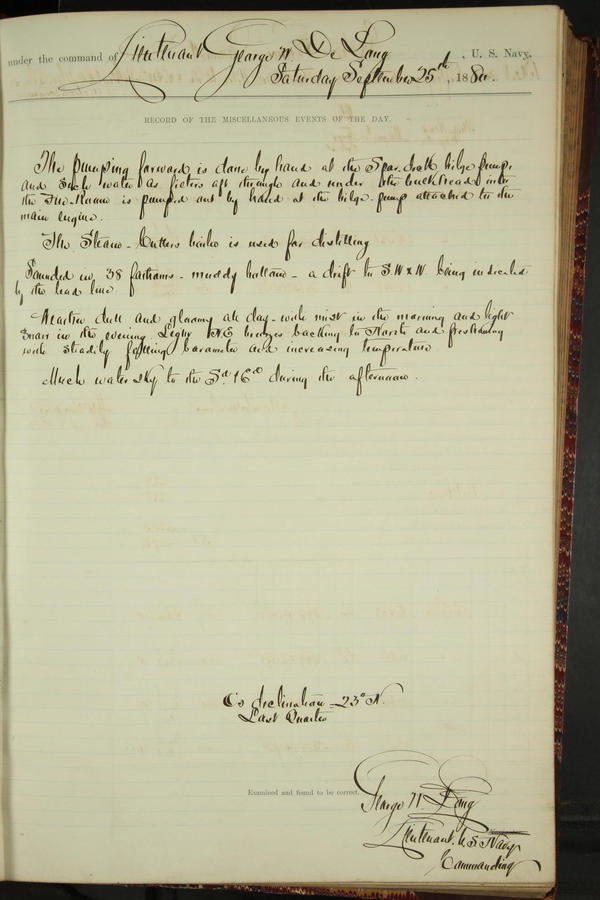 under the command of Lieutenant George W. De Long, U. S. Navy,
Saturday September 25th, 1880.
RECORD OF THE MISCELLANEOUS EVENTS OF THE DAY.
The pumping forward is done by hand at the Spar deck bilge pump,
and such water as filters aft through and under the bulkhead into
the fire room is pumped out by hand at the bilge pump attached to the
main engine.
The Steam-Cutters boiler is used for distilling
Sounded in 38 fathoms - muddy bottom - a drift to S.W x W being indicated
by the lead line.
Weather dull and gloomy all day - with mist in the morning and light
snow in the evening Light N.E breezes backing to North and freshening
with steadily falling barometer and increasing temperature
Much water sky to the Sd & Ed during the afternoon.
declination 23° N.
Last Quarter
Examined and found to be correct.
George W. De Long
Lieutenant. U. S Navy
Commanding